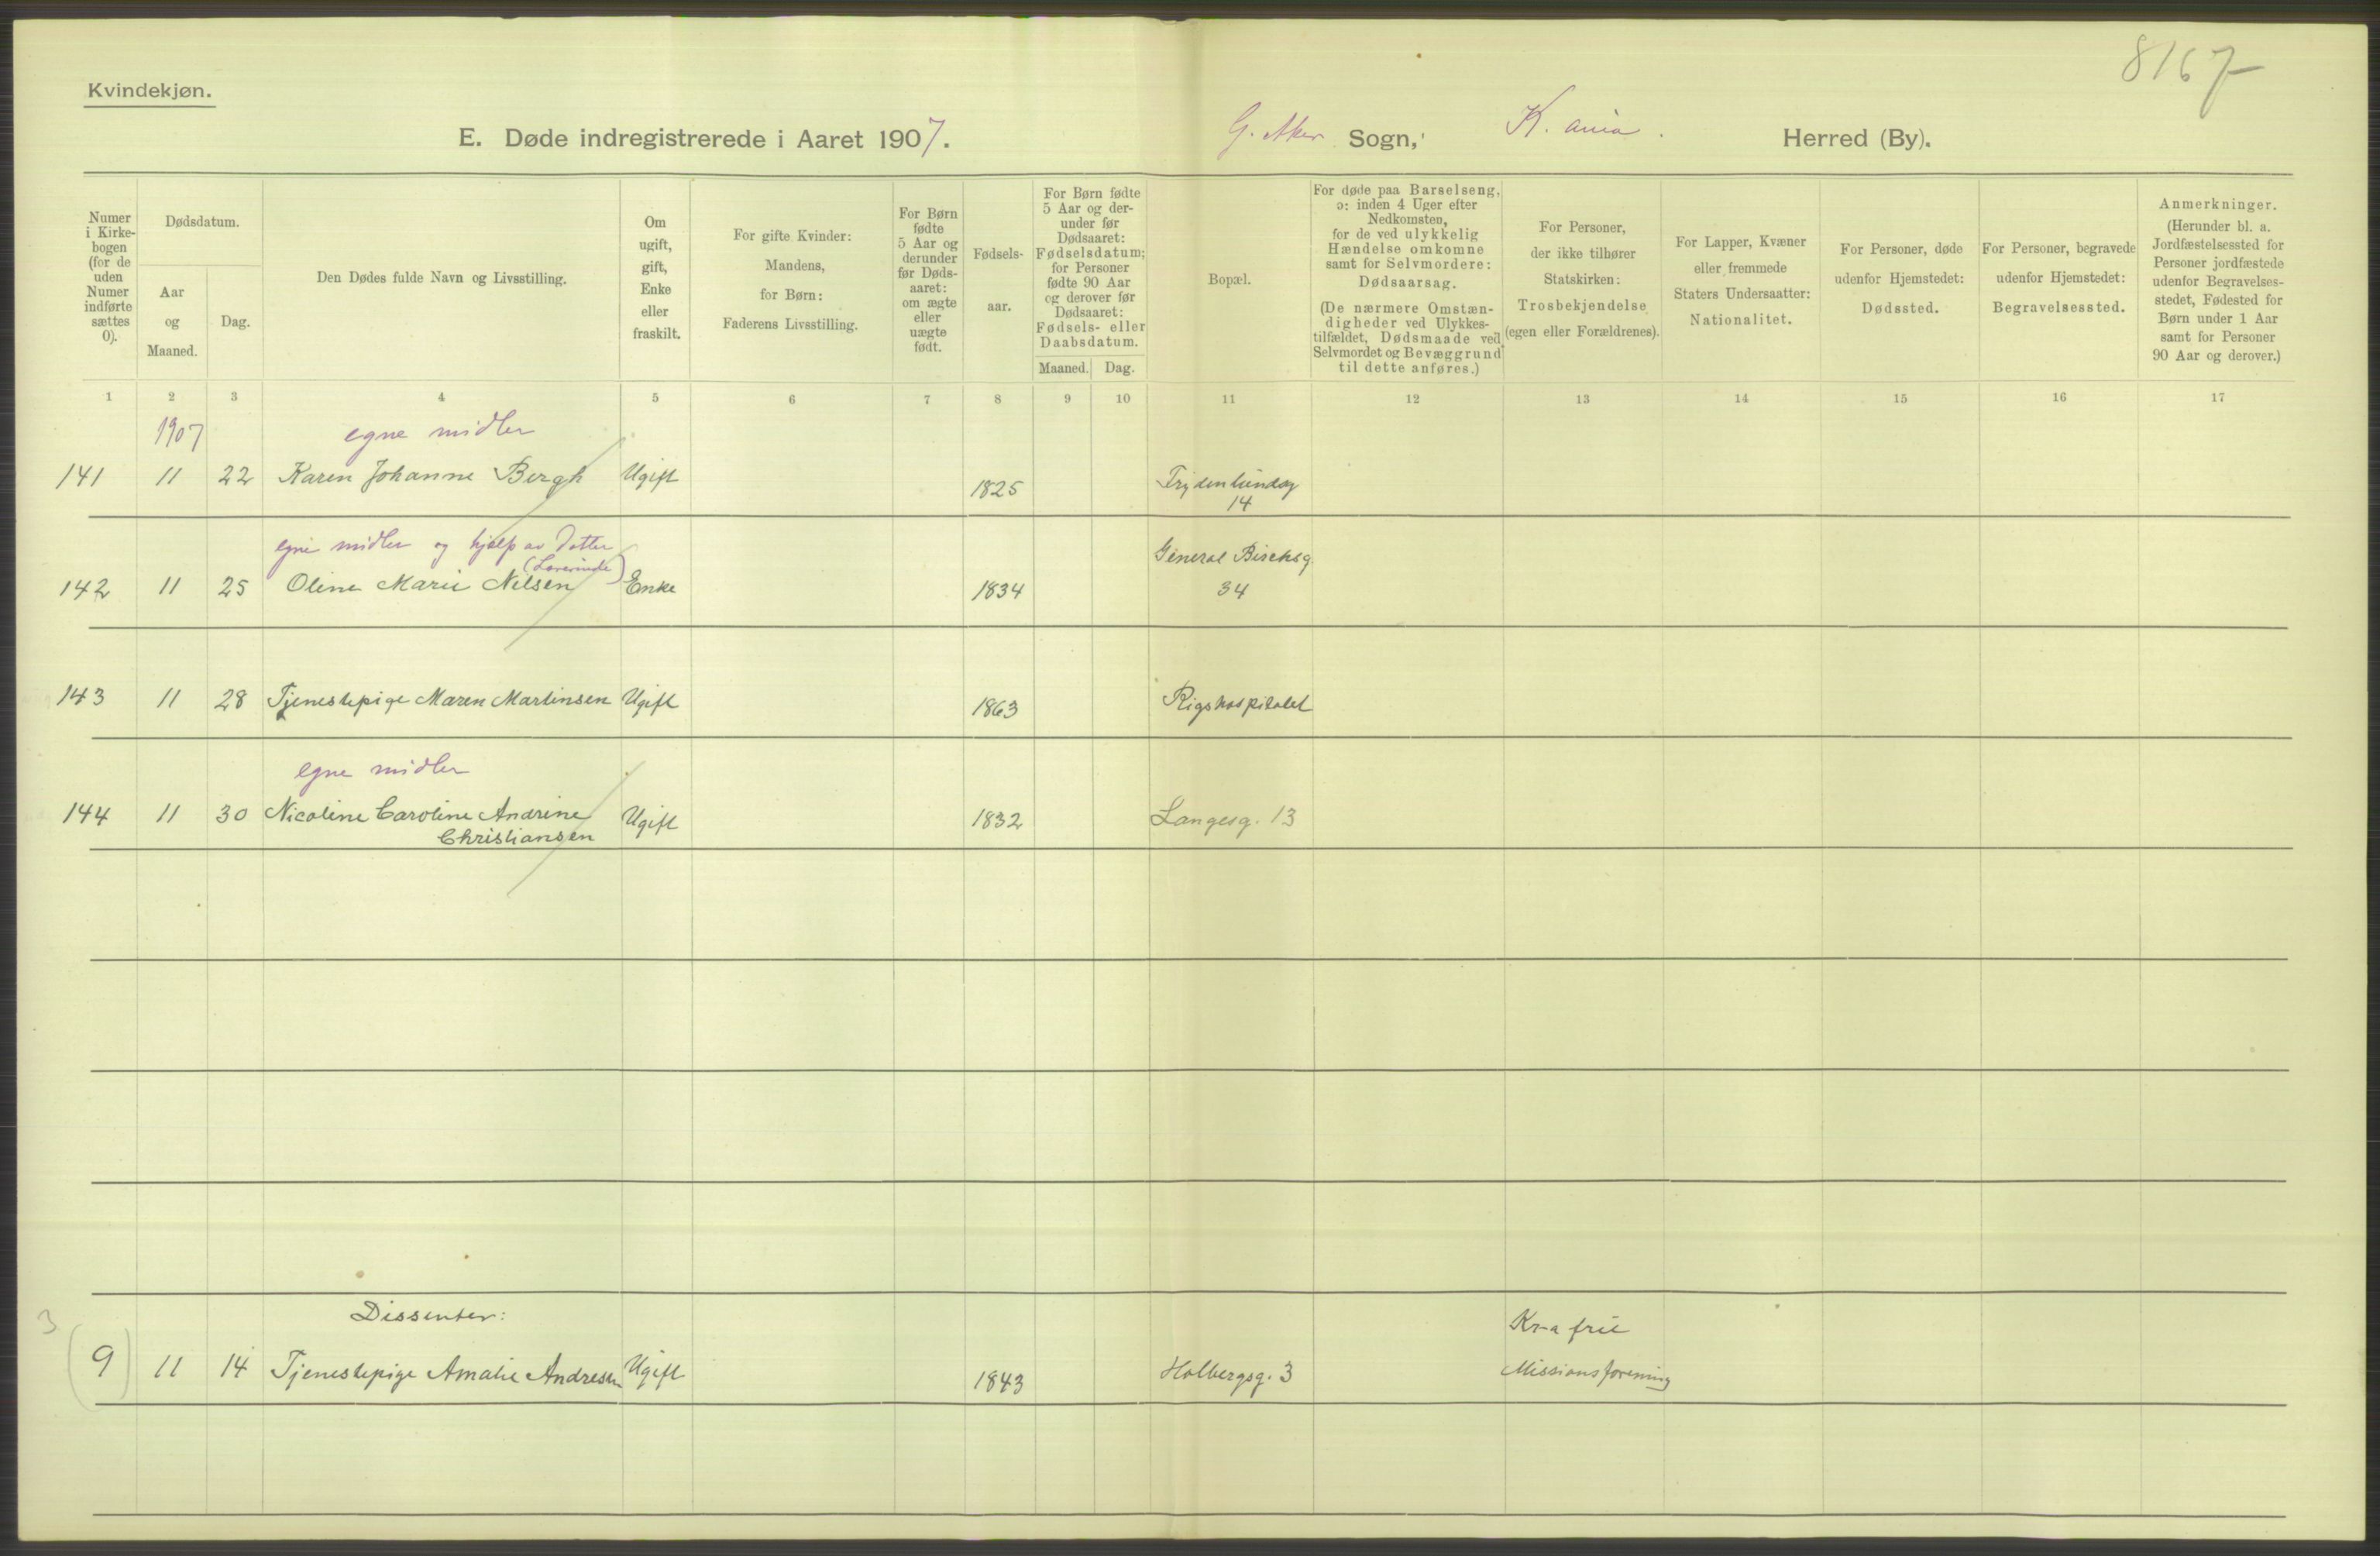 8167
Kvindekjøn.
E. Døde indregistrerede i Aaret 1907. G. Aker Sogn, K.ania. Herred (By).
Numer
i Kirke-
bogen
(for de
uden
Numer
indførte
sættes
0).
Dødsdatum.
Aar
og
Maaned.
Dag.
Den Dødes fulde Navn og Livsstilling.
Om
ugift,
gift,
Enke
eller
fraskilt.
For gifte Kvinder:
Mandens,
for Børn:
Faderens Livsstilling.
For Børn
fødte
5 Aar og
derunder
før Døds-
aaret:
om ægte
eller
uægte
født.
Fødsels-
aar.
For Børn fødte
5 Aar og der-
under før
Dødsaaret:
Fødselsdatum;
for Personer
fødte 90 Aar
og derover før
Dødsaaret:
Fødsels- eller
Daabsdatum.
Maaned. Dag.
Bopæl.
For døde paa Barselseng,
ɔ: inden 4 Uger efter
Nedkomsten,
for de ved ulykkelig
Hændelse omkomne
samt for Selvmordere:
Dødsaarsag.
(De nærmere Omstæn-
digheder ved Ulykkes-
tilfældet, Dødsmaade ved
Selvmordet og Bevæggrund
til dette anføres.)
For Personer,
der ikke tilhører
Statskirken:
Trosbekjendelse
(egen eller Forældrenes).
For Lapper, Kvæner
eller fremmede
Staters Undersaatter:
Nationalitet.
For Personer, døde
udenfor Hjemstedet:
Dødssted.
For Personer, begravede
udenfor Hjemstedet:
Begravelsessted.
Anmerkninger.
(Herunder bl. a.
Jordfæstelsessted for
Personer jordfæstede
udenfor Begravelses-
stedet, Fødested for
Børn under 1 Aar
samt for Personer
90 Aar og derover.)
1 2 3 4 5 6 7 8 9 10 11 12 13 14 15 16 17
1907 egne midler
141 11 22 Karen Johanne Bergh Ugift 1825 Frydenlundsg
14
egne midler og hjælp av Datter
(Lærerinde)
General Birchsg.
142 11 25 Oline Marie Nilsen Enke 1834 34
143 11 28 Tjenestepige Maren Martinsen Ugift 1863 Rigshospitalet
egne midler
144 11 30 Nicoline Caroline Andrine Ugift 1832 Langesg. 13
Christiansen
3
Dissenter: Kr-a frie
(9) 11 14 Tjenestepige Amalie Andresen Ugift 1843 Holbergsg. 3 Missionsforening